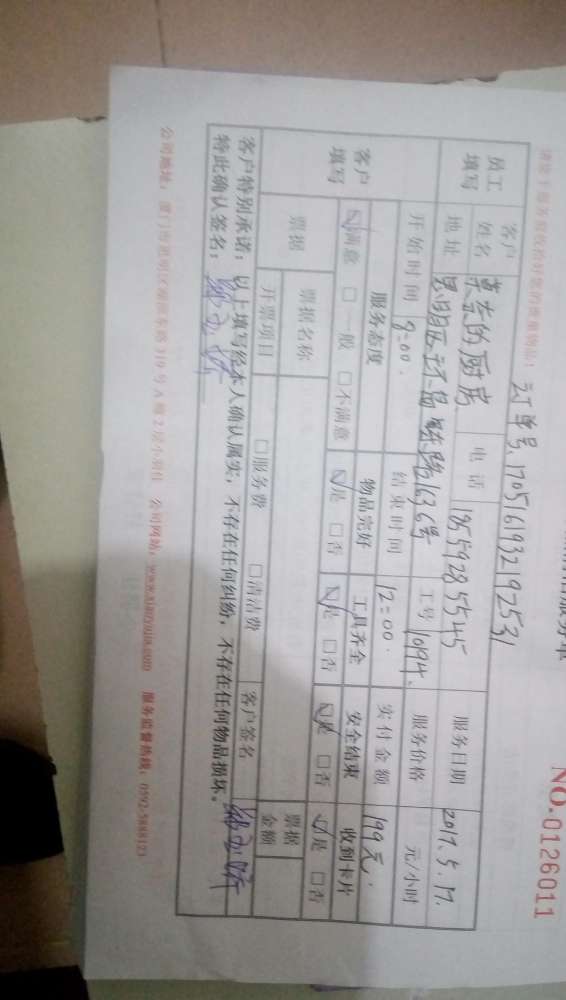 NO.0126011
订单号、1705161932192531
员工填写
客户姓名 菜杏的厨房 电话 18559285545 服务日期 2017.5.17.
地址 工号 1094. 服务价格 元/小时
开始时间 9:00. 结束时间 12:00. 实付金额 199元.
客户填写
服务态度 物品完好 工具齐全 安全结束 收到卡片
☑满意 □一般 □不满意 ☑是 □否 ☑是 □否 ☑是 □否 ☑是 □否
票据 票据名称 票据金额
开票项目 □服务费 □清洁费 客户签名
客户特别承诺：以上填写经本人确认属实，不存在任何纠纷，不存在任何物品损坏。
特此确认签名：
公司地址：厦门市思明区 319号A幢2层 公司网站：www.xianyujia.com 服务监督热线：0592-5888123